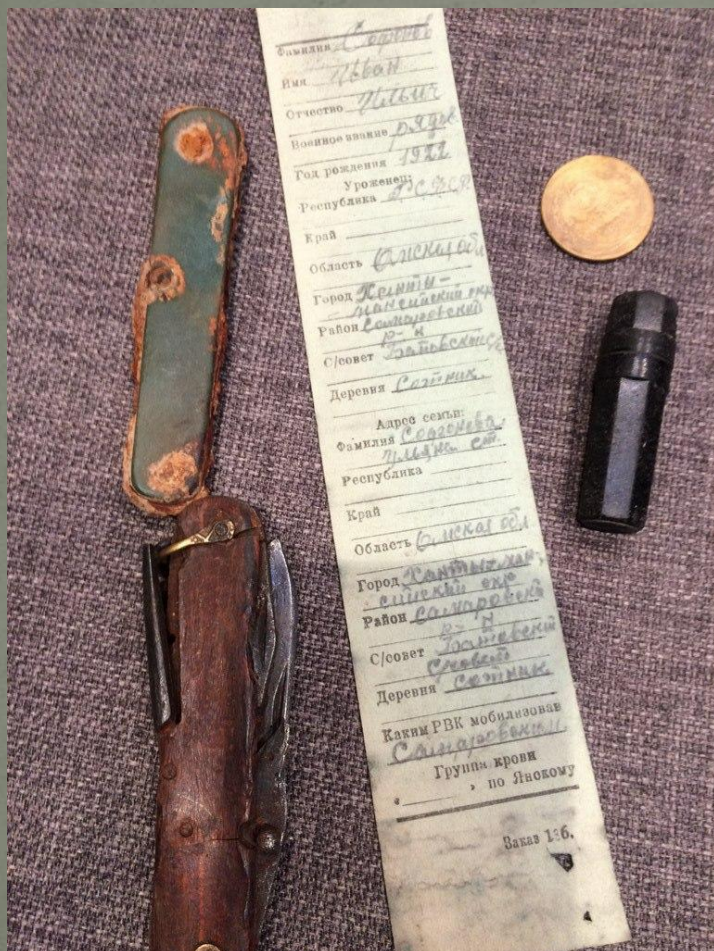 Фамилия Софонов
Имя Иван
Отчество Ильич
Военное звание рядов.
Год рождения 1922
Уроженец:
Республика РСФСР
Край
Область Омская обл
Город Ханты-
мансийский окр
Район Самаровский
р-н
С/совет Батовский
Деревня Сотник.
Адрес семьи:
Фамилия Софонова
Ульяна ст.
Республика
Край
Область Омская обл
Город Ханты-ман-
сийский окр
Район Самаровский
р-н
С/совет Батовский
с/совет
Деревня Сотник
Каким РВК мобилизован
Самаровским
Группа крови
" " по Янскому
Заказ